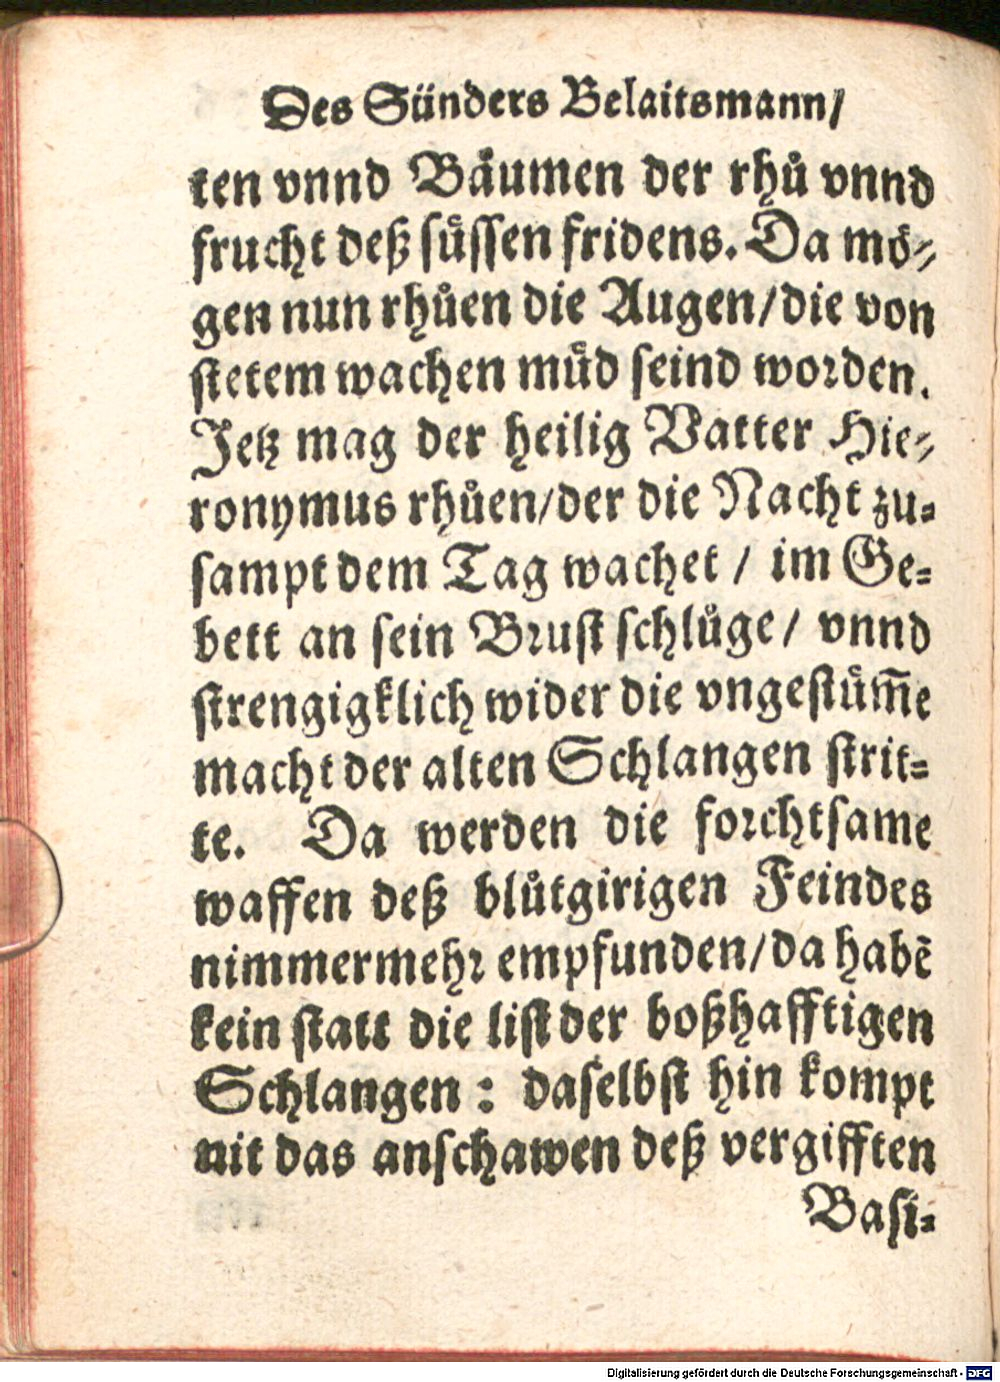 Des Sünders Belaitsmann/
ten vnnd Bäumen der rhů vnnd
frucht deß süssen fridens. Da mö-
gen nun rhůen die Augen/die von
stetem wachen müd seind worden.
Jetz mag der heilig Vatter Hie-
ronymus rhůen/der die Nacht zu-
sampt dem Tag wachet / im Ge-
bett an sein Brust schlůge / vnnd
strengigklich wider die vngestüm̃e
macht der alten Schlangen strit-
te. Da werden die forchtsame
waffen deß blůtgirigen Feindes
nimmermehr empfunden/da habẽ
kein statt die list der boßhafftigen
Schlangen : daselbst hin kompt
nit das anschawen deß vergifften
Basi-
Digitalisierung gefördert durch die Deutsche Forschungsgemeinschaft - DFG